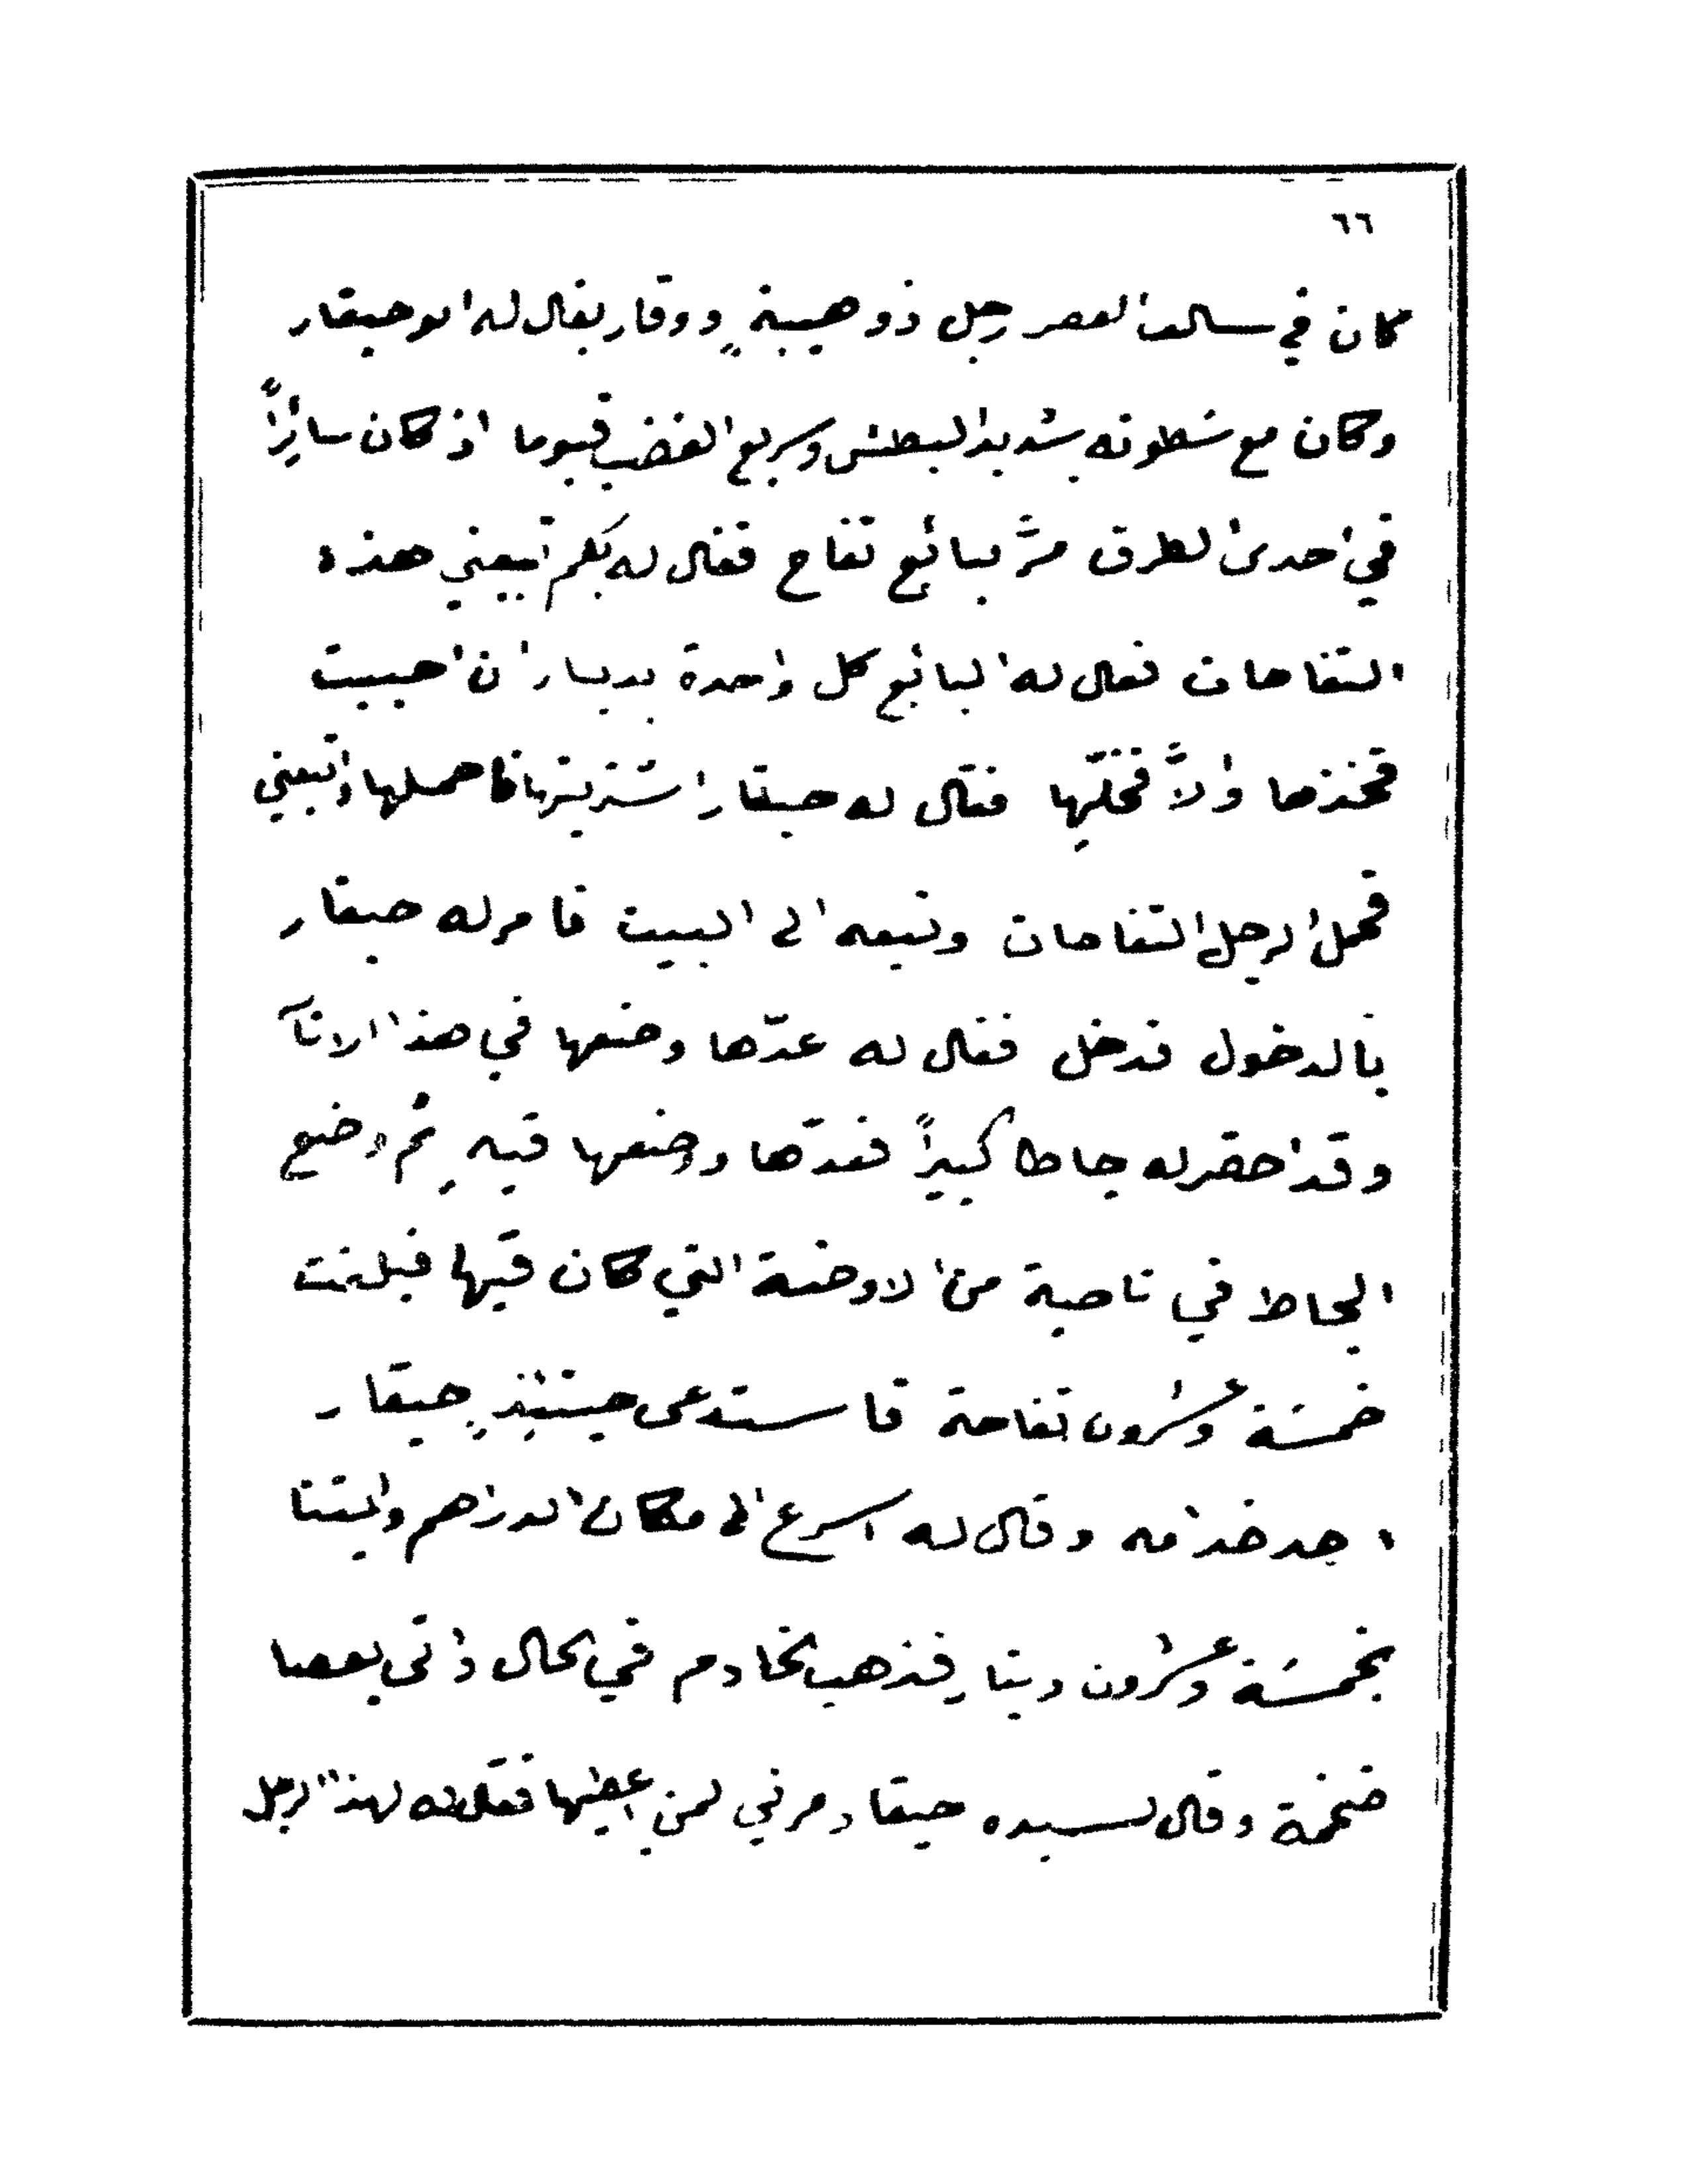 ٦٦
كان في سالف العصر رجل ذو هيبةٍ ووقار يقال له ابو حيقار
وكان مع سطوته شديد البطش وسريع الغضب فيوما اذ كان سائراً
في احدى الطرق مرَّ ببائع تفاح فقال له بكم تبيعني هذه
التفاحات فقال له البائع كل واحدة بدينار ان احببت
فخذها والاَّ فخلّها فقال له حيقار اشتريتها فاحملها واتبعني
فحمل الرجل التفاحات وتبعه الى البيت فامر له حيقار
بالدخول فدخل فقال له عدّها وضعها في هذا الانآ
وقد احضر له جاطا كبيراً فعدّها وضعها فيه ثم وضع
الجاط في ناحية من الاوضة التي كان فيها فبلغت
خمسة وعشرون تفاحة فاستدعى حينئذٍ حيقار
احد خدامه وقال له اسرع الى مكان الدراهم وائتنا
بخمسة وعشرون دينار فذهب الخادم في الحال واتى بعصا
ضخمة وقال لسيده حيقار مرني لمن اعطيها فقال له لهذا الرجل